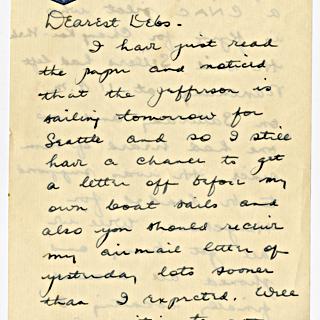 Dearest Debs.
I have just read
the paper and noticed
that the Jefferson is
sailing tomorrow for
Seattle and so I still
have a chance to get
a letter off before my
own boat sails and
also you should receive
my airmail letter of
yesterday lots sooner
than I expected. Well